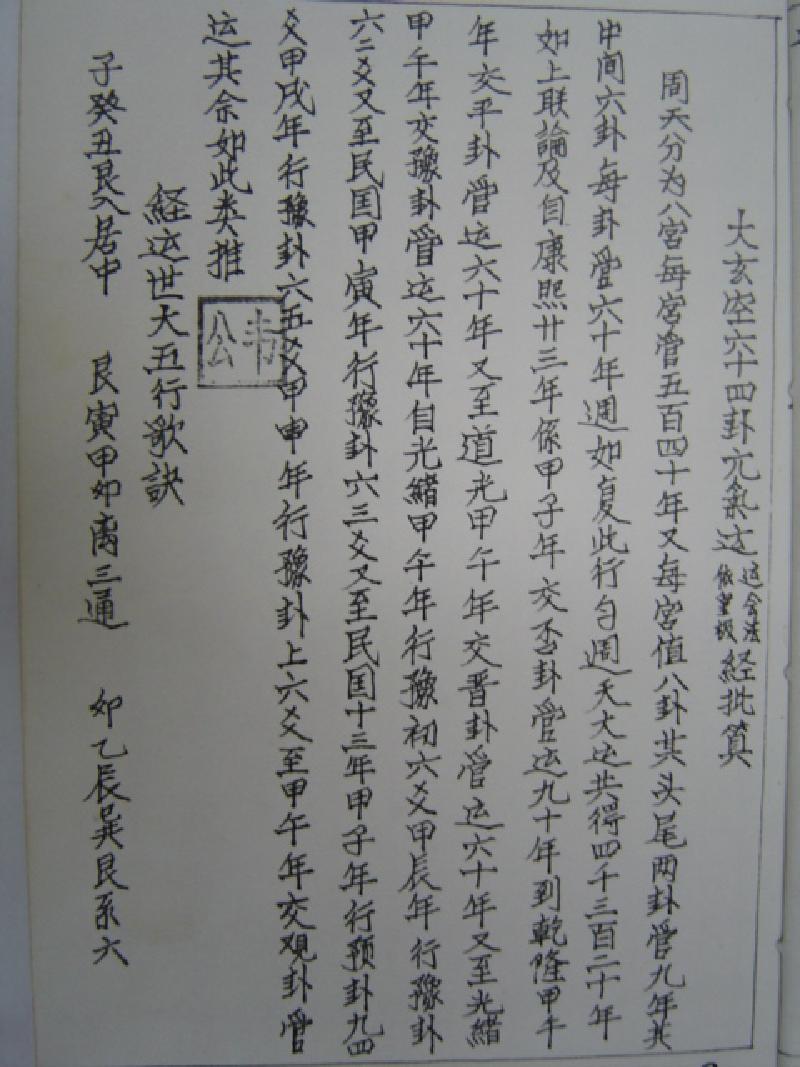 大玄空六十四卦亢氣运 运会法 依皇极 経批算
周天分为八宮每宮管五百四十年又每宮值八卦其头尾两卦管九年其
中间六卦每卦管六十年週如复此行勻週天大运共得四千三百二十年
如上联論及自康熙廿三年係甲子年交否卦管运九十年到乾隆甲午
年交平卦管运六十年又至道光甲午年交晋卦管运六十年又至光緒
甲午年交豫卦管运六十年自光緒甲午年行豫初六爻甲辰年行豫卦
六二爻又至民国甲寅年行豫卦六三爻又至民国十三年甲子年行预卦九四
爻甲戌年行豫卦六五爻甲申年行豫卦上六爻至甲午年交观卦管
运其余如此类推
韦公
経运世大五行歌訣
子癸丑艮八居中 艮寅甲卯离三通 卯乙辰巽艮系六